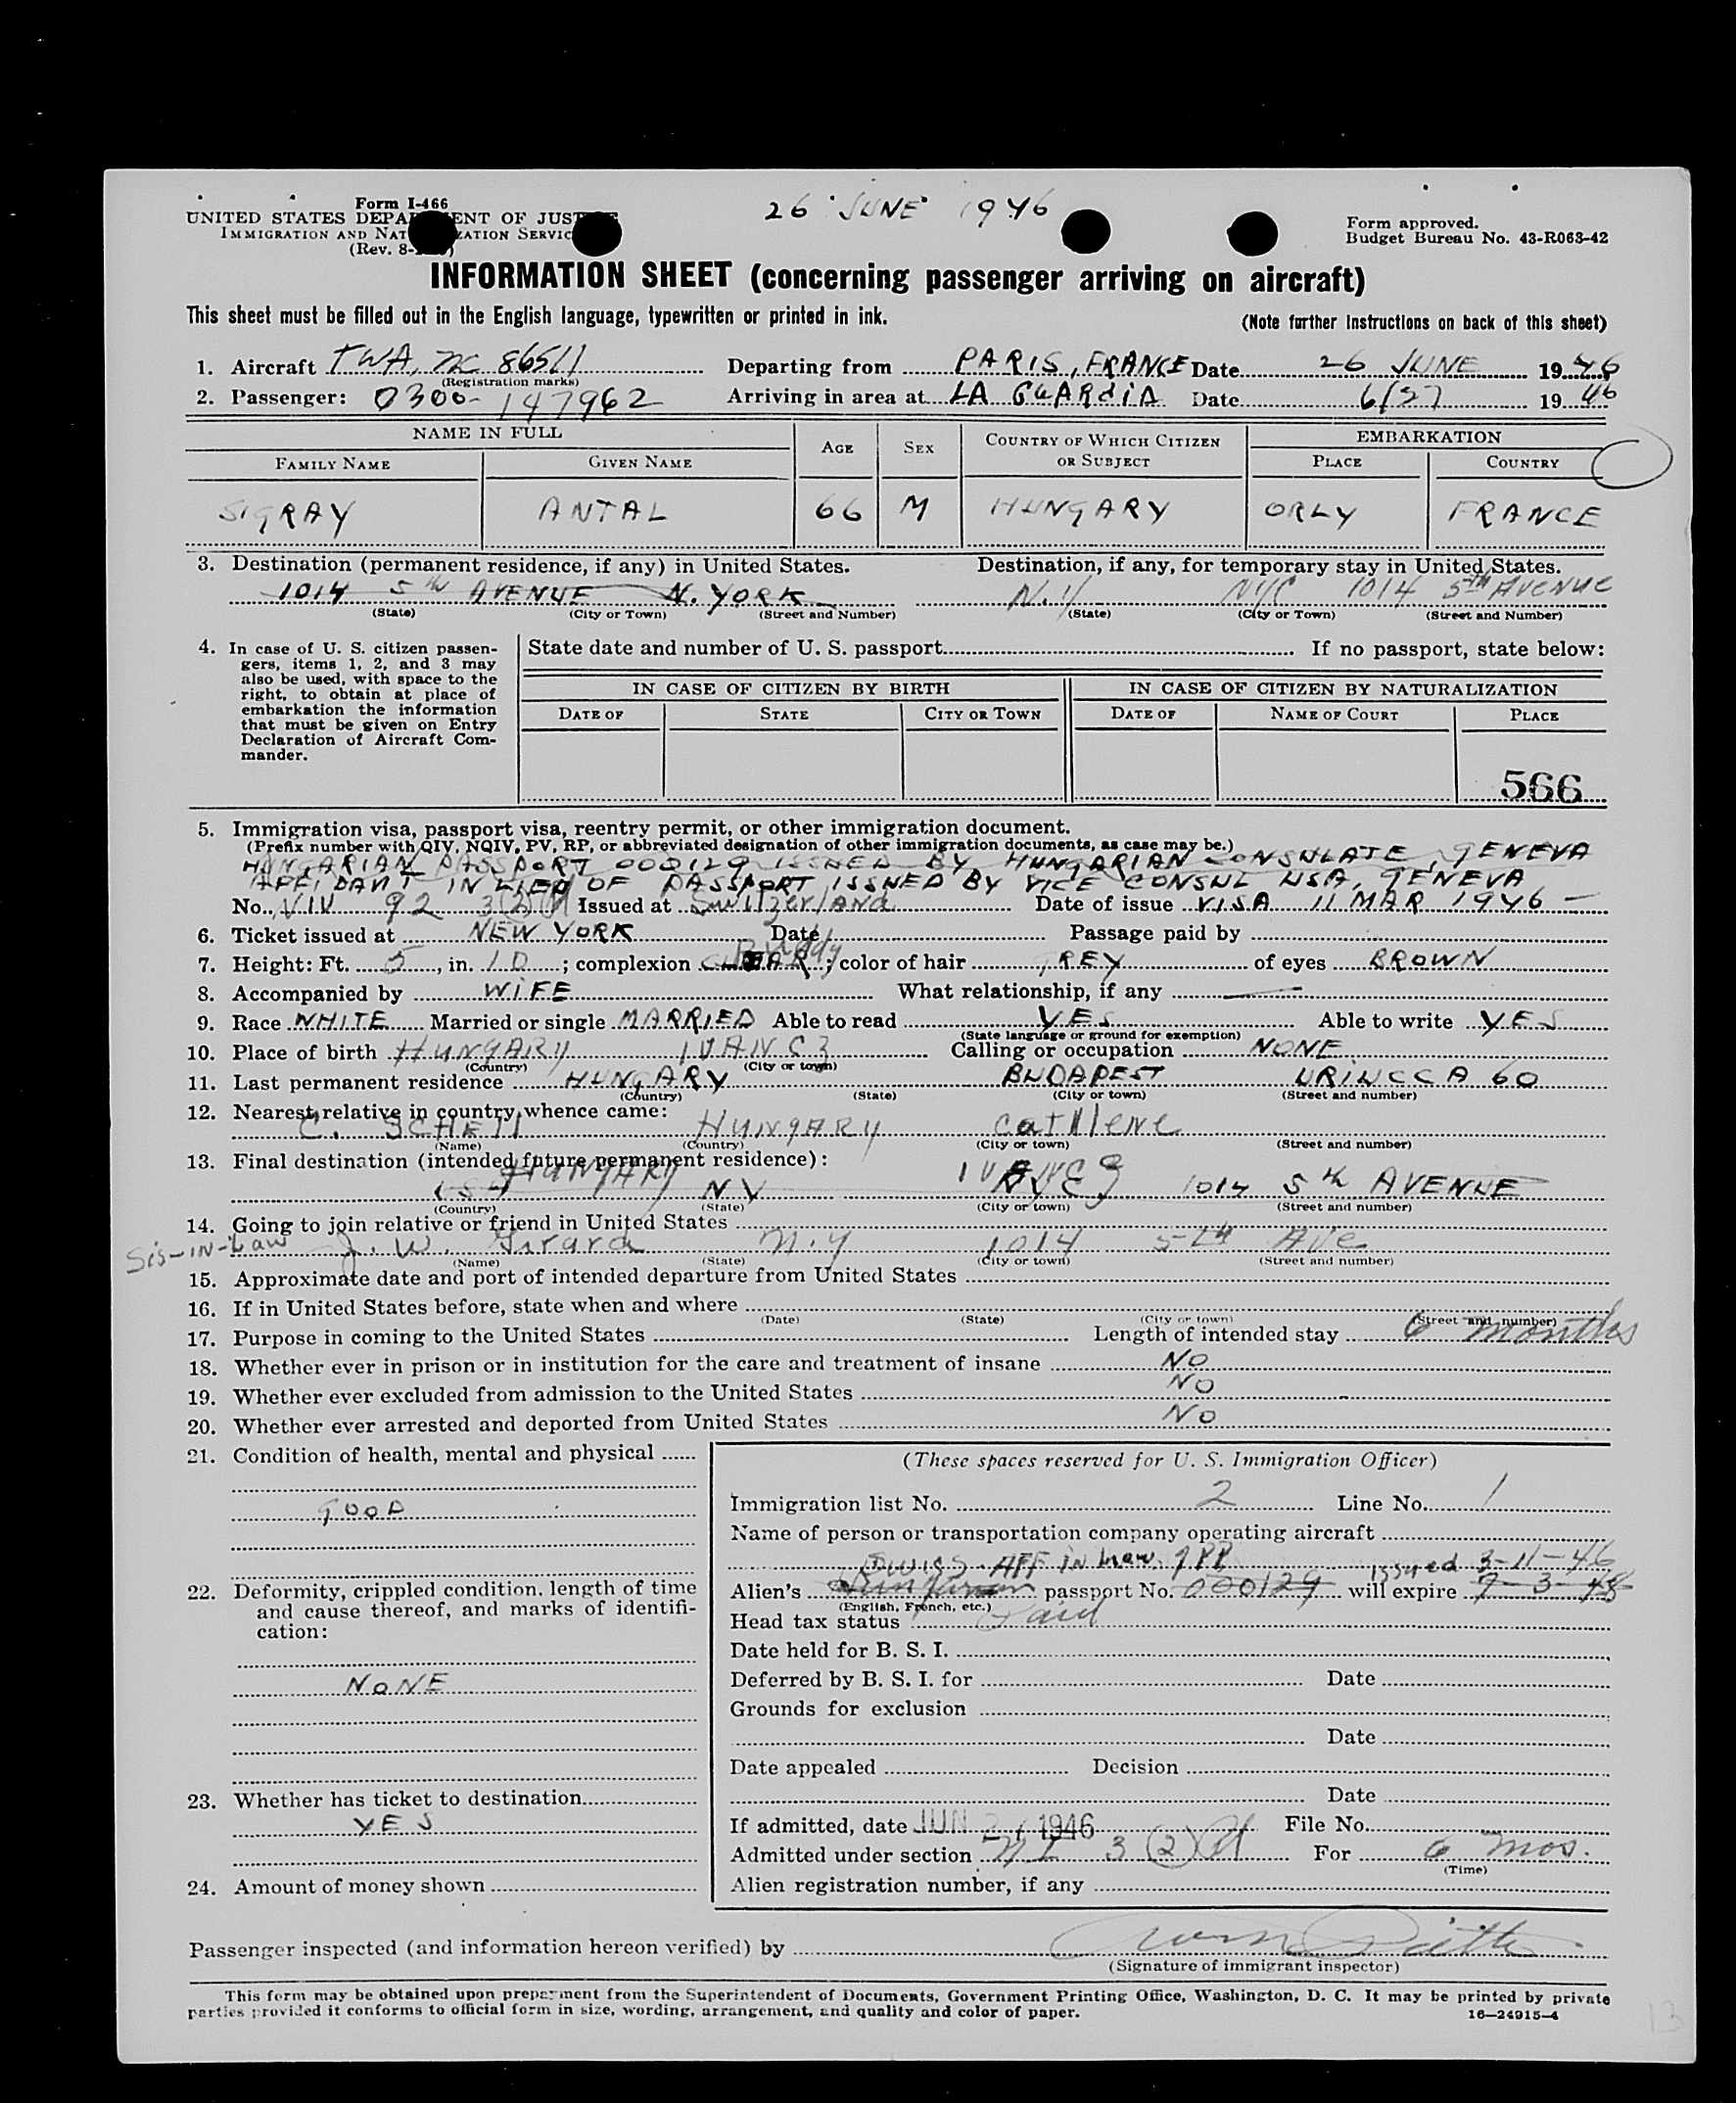 Form I-466
26 JUNE 1946
UNITED STATES DEPA ENT OF JUST
IMMIGRATION AND NAT ZATION SERVIC
(Rev. 8-
Form approved.
Budget Bureau No. 43-R063-42
INFORMATION SHEET (concerning passenger arriving on aircraft)
This sheet must be filled out in the English language, typewritten or printed in ink.
(Note further instructions on back of this sheet)
1. Aircraft TWA, NC 86511 Departing from PARIS, FRANCE Date 26 JUNE 1946
(Registration marks)
2. Passenger: 0300-147962 Arriving in area at LA GUARdiA Date 6/27 1946
NAME IN FULL AGE SEX COUNTRY OF WHICH CITIZEN OR SUBJECT EMBARKATION
FAMILY NAME GIVEN NAME PLACE COUNTRY
SIGRAY ANTAL 66 M HUNGARY ORLY FRANCE
3. Destination (permanent residence, if any) in United States. Destination, if any, for temporary stay in United States.
1014 5th AVENUE N. YORK N.Y NYC 1014 5th AVENUE
(State) (City or Town) (Street and Number) (State) (City or Town) (Street and Number)
4. In case of U. S. citizen passen-
gers, items 1, 2, and 3 may
also be used, with space to the
right, to obtain at place of
embarkation the information
that must be given on Entry
Declaration of Aircraft Com-
mander.
State date and number of U. S. passport If no passport, state below:
IN CASE OF CITIZEN BY BIRTH IN CASE OF CITIZEN BY NATURALIZATION
DATE OF STATE CITY OR TOWN DATE OF NAME OF COURT PLACE
566
5. Immigration visa, passport visa, reentry permit, or other immigration document.
(Prefix number with QIV, NQIV, PV, RP, or abbreviated designation of other immigration documents, as case may be.)
HUNGARIAN PASSPORT 000129 ISSUED BY HUNGARIAN CONSULATE, GENEVA
AFFIDAVIT IN LIEU OF PASSPORT ISSUED BY VICE CONSUL USA, GENEVA
No. VIV 92 3(2) Issued at Switzerland Date of issue VISA 11 MAR 1946
6. Ticket issued at NEW YORK Date Passage paid by
7. Height: Ft. 5, in. 10; complexion Ruddy; color of hair GREY of eyes BROWN
8. Accompanied by WIFE What relationship, if any
9. Race WHITE Married or single MARRIED Able to read YES Able to write YES
(State language or ground for exemption)
10. Place of birth HUNGARY IVANCZ Calling or occupation NONE
(Country) (City or town)
11. Last permanent residence HUNGARY BUDAPEST URIUCCA 60
(Country) (State) (City or town) (Street and number)
12. Nearest relative in country whence came:
C. HUNGARY
(Name) (Country) (City or town) (Street and number)
13. Final destination (intended future permanent residence):
HUNGARY NY IVANCZ 1014 5th AVENUE
(Country) (State) (City or town) (Street and number)
14. Going to join relative or friend in United States
Sis-IN-Law J. W. Girard N.Y 1014 5th Ave
(Name) (State) (City or town) (Street and number)
15. Approximate date and port of intended departure from United States
16. If in United States before, state when and where
(Date) (State) (City or town) (Street and number)
17. Purpose in coming to the United States Length of intended stay 6 months
18. Whether ever in prison or in institution for the care and treatment of insane NO
19. Whether ever excluded from admission to the United States NO
20. Whether ever arrested and deported from United States NO
21. Condition of health, mental and physical
GOOD
22. Deformity, crippled condition, length of time
and cause thereof, and marks of identifi-
cation:
NONE
23. Whether has ticket to destination
YES
24. Amount of money shown
(These spaces reserved for U. S. Immigration Officer)
Immigration list No. 2 Line No. 1
Name of person or transportation company operating aircraft
Swiss AFF IN Lieu PPP issued 3-11-46
Alien's passport No. 000129 will expire 7-3-48
(English, French, etc.)
Head tax status Paid
Date held for B. S. I.
Deferred by B. S. I. for Date
Grounds for exclusion
Date
Date appealed Decision
Date
If admitted, date JUN 27 1946 File No.
Admitted under section 3 (2) For 6 mos.
(Time)
Alien registration number, if any
Passenger inspected (and information hereon verified) by
(Signature of immigrant inspector)
This form may be obtained upon prepayment from the Superintendent of Documents, Government Printing Office, Washington, D. C. It may be printed by private
parties provided it conforms to official form in size, wording, arrangement, and quality and color of paper.
16—24915-4
13